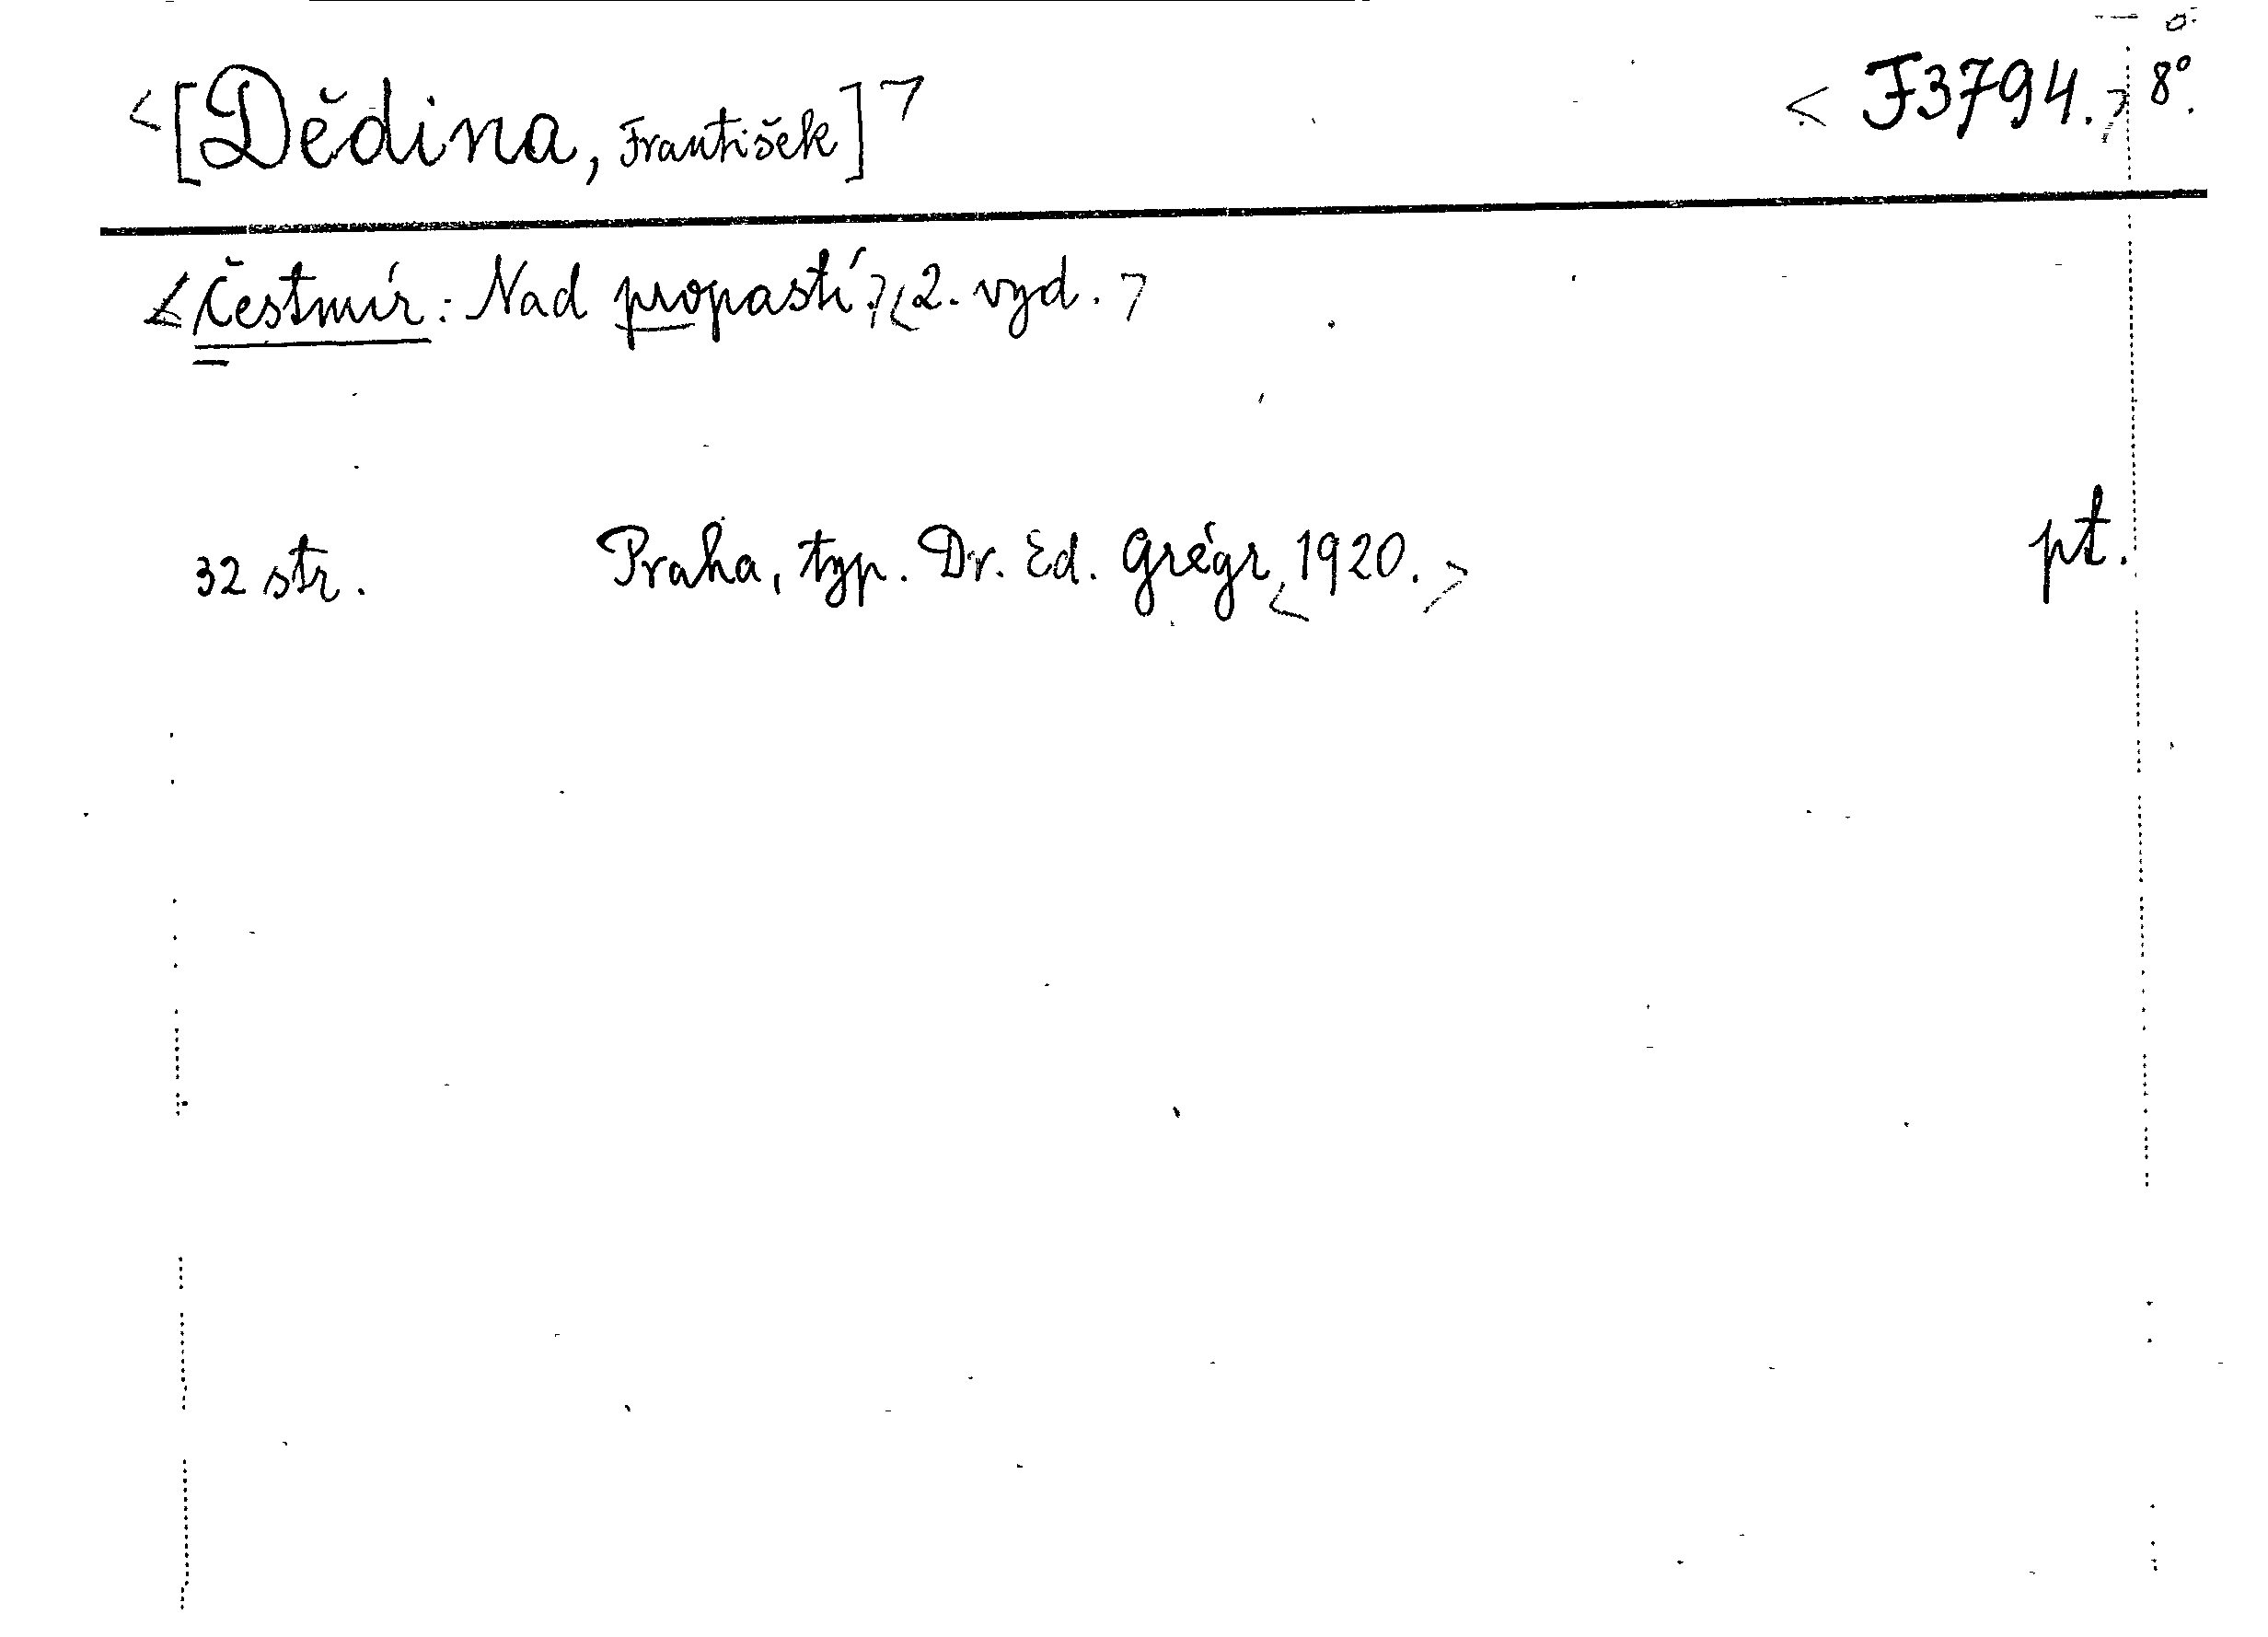 <[Dědina, František]> <F3794.> 8°.
<Čestmír: Nad propastí.><2. vyd.>
32 str. Praha, typ. Dr. Ed. Grégr <1920.> pt.